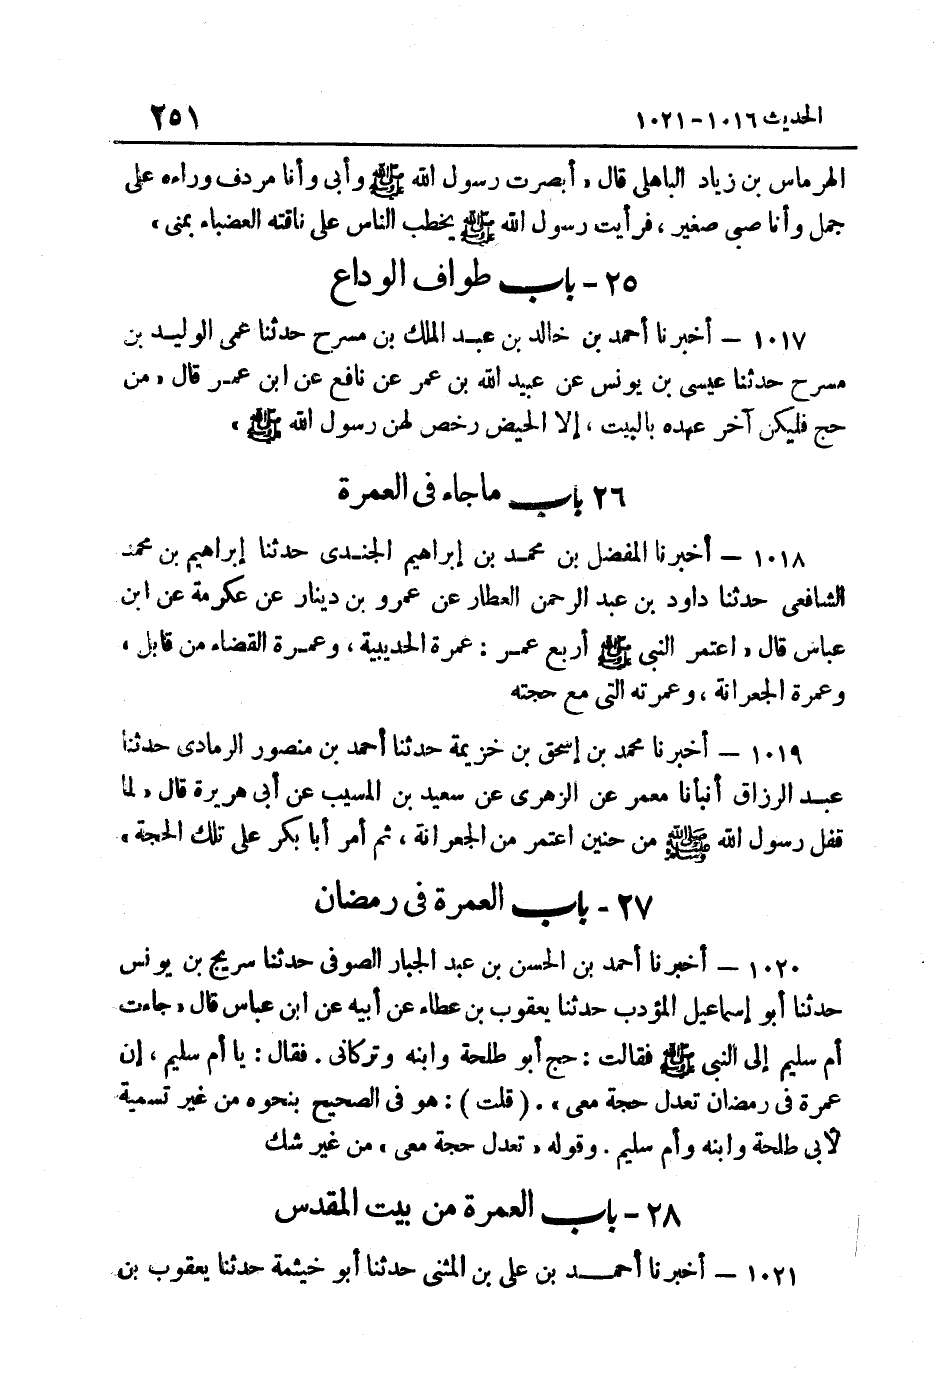 الحديث ١٠١٦-١٠٢١ ٢٥١
الهرماس بن زياد الباهلى قال « أبصرت رسول الله ﷺ وأبى وأنا مردف وراءه على
جمل وأنا صبى صغير ، فرأيت رسول الله ﷺ يخطب الناس على ناقته العضباء بمنى »
٢٥ - باب طواف الوداع
١٠١٧ – أخبرنا أحمد بن خالد بن عبد الملك بن مسرح حدثنا عمى الوليد بن
مسرح حدثنا عيسى بن يونس عن عبيد الله بن عمر عن نافع عن ابن عمر قال « من
حج فليكن آخر عهده بالبيت ، إلا الحيض رخص لهن رسول الله ﷺ »
٢٦ باب ماجاء فى العمرة
١٠١٨ – أخبرنا المفضل بن محمد بن إبراهيم الجندى حدثنا إبراهيم بن محمد
الشافعى حدثنا داود بن عبد الرحمن العطار عن عمرو بن دينار عن عكرمة عن ابن
عباس قال « اعتمر النبى ﷺ أربع عمر : عمرة الحديبية ، وعمرة القضاء من قابل ،
وعمرة الجعرانة ، وعمرته التى مع حجته
١٠١٩ – أخبرنا محمد بن إسحق بن خزيمة حدثنا أحمد بن منصور الرمادى حدثنا
عبد الرزاق أنبأنا معمر عن الزهرى عن سعيد بن المسيب عن أبى هريرة قال « لما
قفل رسول الله ﷺ من حنين اعتمر من الجعرانة ، ثم أمر أبا بكر على تلك الحجة »
٢٧ - باب العمرة فى رمضان
١٠٢٠ – أخبرنا أحمد بن الحسن بن عبد الجبار الصوفى حدثنا سريج بن يونس
حدثنا أبو إسماعيل المؤدب حدثنا يعقوب بن عطاء عن أبيه عن ابن عباس قال « جاءت
أم سليم إلى النبى ﷺ فقالت : حج أبو طلحة وابنه وتركانى . فقال : يا أم سليم ، إن
عمرة فى رمضان تعدل حجة معى » . ( قلت ) : هو فى الصحيح بنحوه من غير تسمية
لأبى طلحة وابنه وأم سليم . وقوله « تعدل حجة معى » من غير شك
٢٨ - باب العمرة من بيت المقدس
١٠٢١ – أخبرنا أحمد بن على بن المثنى حدثنا أبو خيثمة حدثنا يعقوب بن